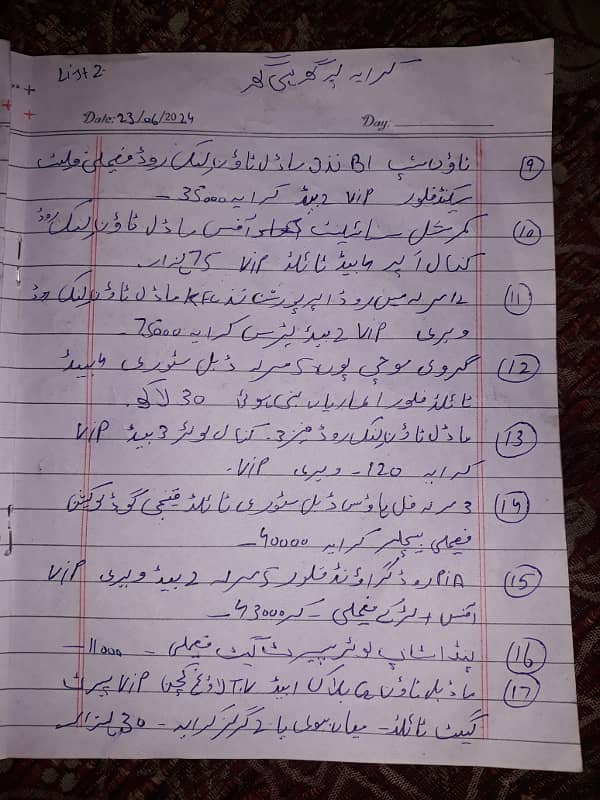 List 2.
کرایہ پر گھر ہی گھر
Date: 23/06/2024 Day:
(9) ٹاؤن شپ B1 نزد ماڈل ٹاؤن لنک روڈ فیملی فلیٹ
سیکنڈ فلور VIP 2 بیڈ کرایہ 35000 -
(10) کمرشل سائیٹ آفس ماڈل ٹاؤن لنک روڈ
کنال اپر 4 بیڈ ٹائلڈ VIP 75 ہزار.
(11) 12 مرلہ مین روڈ اپر پورشن نزد KFC ماڈل ٹاؤن لنک روڈ
ویری VIP 2 بیڈ ٹیرس کرایہ 75000 -
(12) گروی موچی پورہ 5 مرلہ ڈبل سٹوری 4 بیڈ
ٹائلڈ فلور الماریاں بنی ہوئی 30 لاکھ.
(13) ماڈل ٹاؤن لنک روڈ فیز 3. کنال لوئر 3 بیڈ VIP
کرایہ 120 - ویری VIP.
(14) 3 مرلہ فل ہاؤس ڈبل سٹوری ٹائلڈ قینچی گڈ لوکیشن
فیملی بیچلر کرایہ 40000 -
(15) PIA روڈ گراؤنڈ فلور 5 مرلہ 2 بیڈ ویری VIP
آفس + لڑکے فیملی - کر 43000 -
(16) پنڈ اسٹاپ لوئر سیپرٹ گیٹ فیملی - 11000 -
(17) ماڈل ٹاؤن Q بلاک 1 بیڈ T.V لاؤنج کچن VIP سپرٹ
گیٹ ٹائلڈ - میاں بیوی یا 2 گرلز کرایہ - 30 ہزار